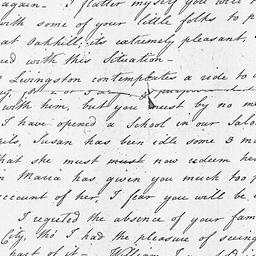 again - I flatter myself you will
with some of your little folks to p
at Oakhill; its extremely pleasant,
ed with this Situation -
Livingston contemplates a ride to
with him, but you must by no me
I have opened a School in our Salo
ils, Susan has been idle some 3 m
that she must must now redeem her
Maria has given you much too
account of her, I fear you will be
I regreted the absence of your fam
City, tho' I had the pleasure of seeing
part of it - William